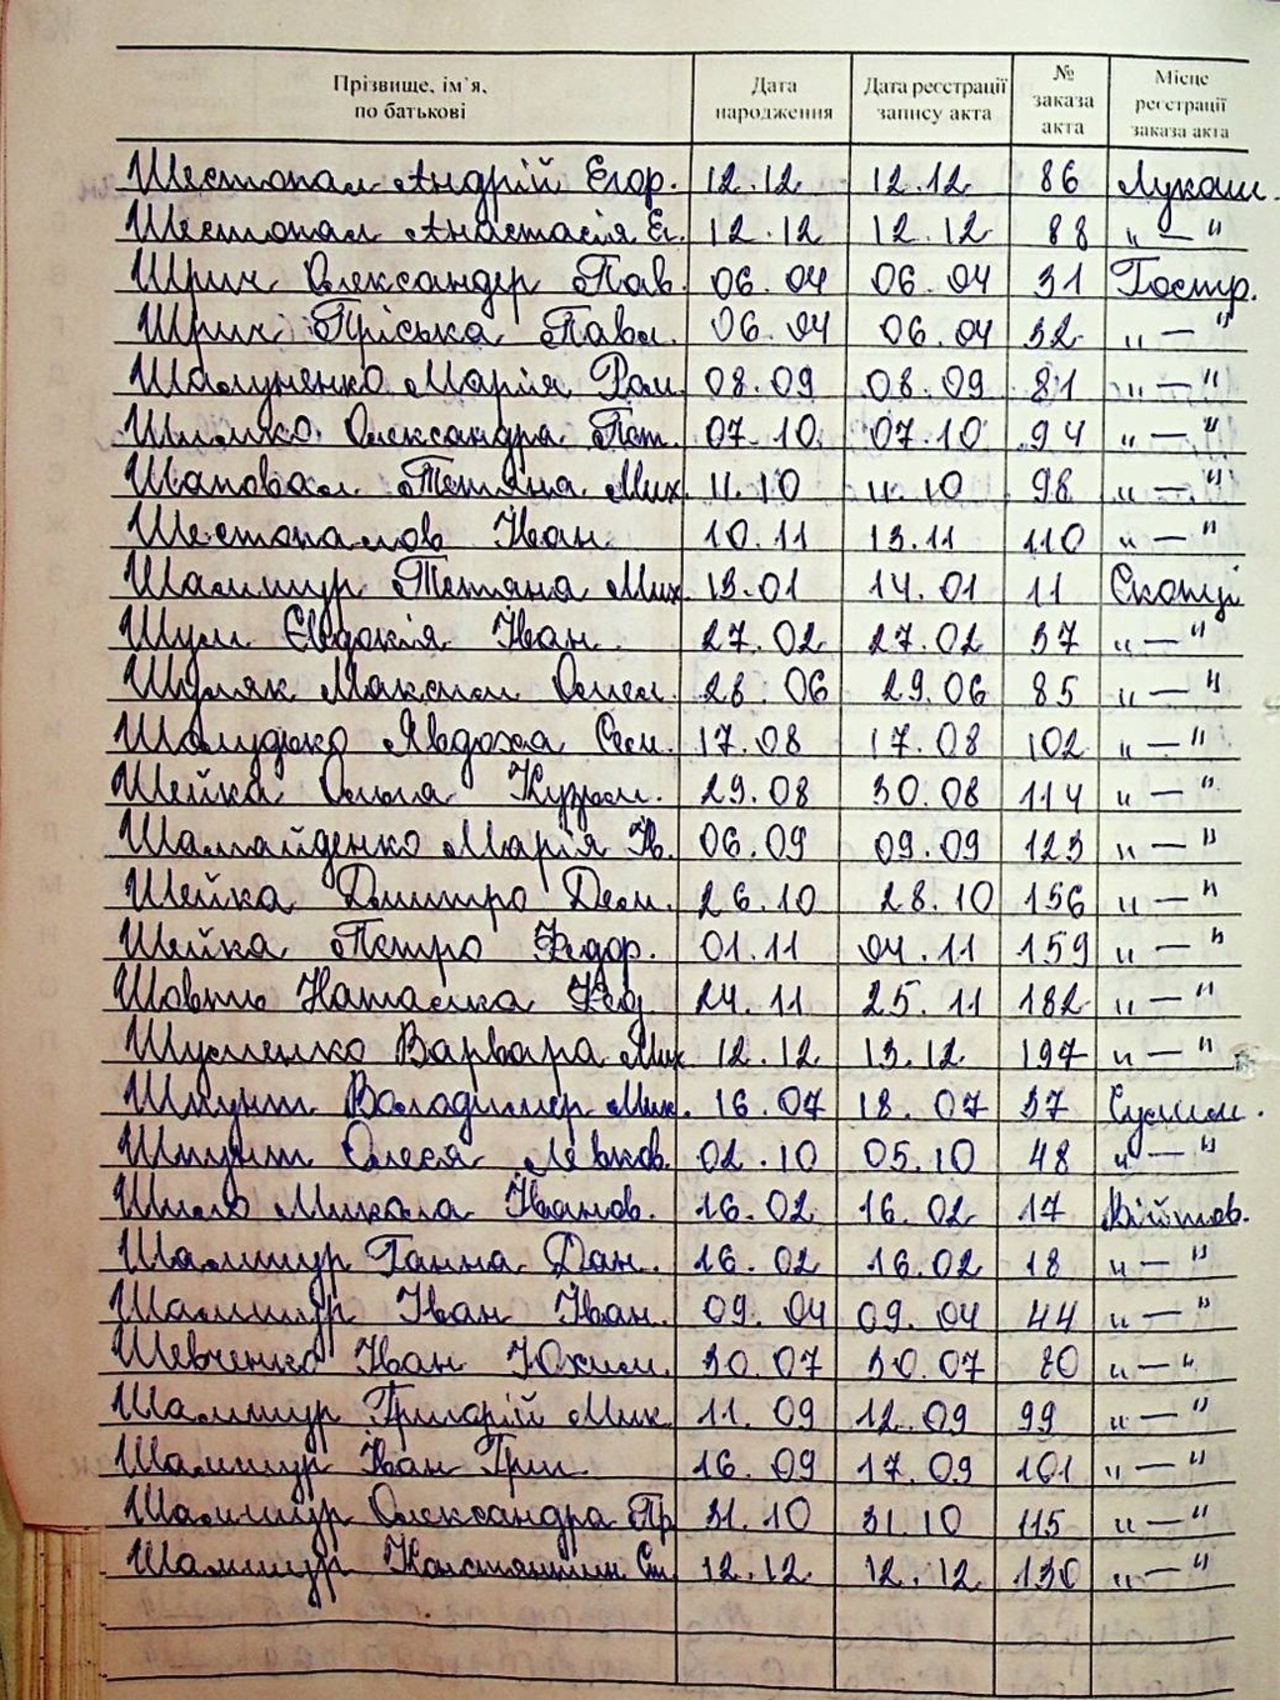 Прізвище, ім`я, по батькові Дата народження Дата реєстрації запису акта № заказа акта Місце реєстрації заказа акта
Шестопал Андрій Єгор. 12.12 12.12 86 Лукаш.
Шестопал Анастасія Єг. 12.12 12.12 88 " — "
Шрич Олександер Пав. 06.04 06.04 31 Гостр.
Шрич Пріська Павл. 06.04 06.04 32 " — "
Шалуненко Марія Ром. 08.09 08.09 81 " — "
Шимко Олександра Пет. 07.10 07.10 94 " — "
Шаповал Тетяна Мих. 11.10 11.10 98 " — "
Шестопалов Іван 10.11 13.11 110 " — "
Шалимур Тетяна Мих. 13.01 14.01 11 Скопці
Шум Євдокія Іван. 27.02 27.02 37 " — "
Шуляк Максим Омел. 28.06 29.06 85 " — "
Шалудько Явдоха Сем. 17.08 17.08 102 " — "
Шейка Ольга Кузьм. 29.08 30.08 114 " — "
Шамайденко Марія Ів. 06.09 09.09 123 " — "
Шейка Дмитро Дем. 26.10 28.10 156 " — "
Шейка Петро Федор. 01.11 04.11 159 " — "
Наталка Фед. 24.11 25.11 182 " — "
Шуменко Варвара Мик. 12.12 13.12 197 " — "
Шпунт Володимер Мик. 16.07 18.07 37 Сулим.
Шпунт Олеся Левков. 02.10 05.10 48 " — "
Шило Микола Іванов. 16.02 16.02 17 Війтов.
Шалимур Ганна Дан. 16.02 16.02 18 " — "
Шалимур Іван Іван. 09.04 09.04 44 " — "
Шевченко Іван Юхим. 30.07 30.07 80 " — "
Шалимур Григорій Мик. 11.09 12.09 99 " — "
Шалимур Іван Гри. 16.09 17.09 101 " — "
Шалимур Олександра Пр. 31.10 31.10 115 " — "
Шалимур Костянтин 12.12 12.12 130 " — "